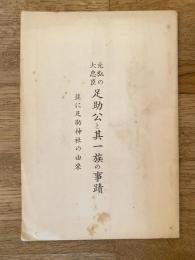 元弘の大忠臣 足助公と其一族の事蹟
並に足助神社の由来